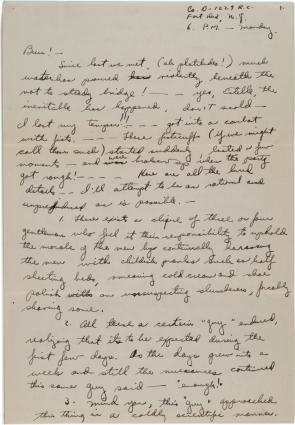 Co. D-1229 R.C.
Fort Dix, N.J.
6. P.M — Monday.
1.
Bus! —
Since last we met, (oh platitudes!) much
water has poured violently beneath the
not to steady bridge! — — yes, the
inevitable has happened, don't scold —
I lost my temper!!! — — got into a combat
with fists. — — These fisticuffs (if you might
call them such) started suddenly, lasted a few
moments — and were broken up when the party
got rough! — — Here are all the lurid
details — I'll attempt to be as rational and
unprejudiced as is possible. —
1. There exists a clique of three or four
gentlemen who feel it their responsibility to uphold
the morale of the new by continually harassing
the men with childish pranks such as half
sheeting beds, smearing cold cream and shoe
polish on unsuspecting slumberers, forcibly
shaving some.
2. All these a certain "guy" endured,
realizing that it's to be expected during the
first few days. As the days grew into a
week and still the nuisances continued
this same guy said — "enough!"
3. Mind you, this "guy" approached
this thing in a coldly scientific manner.